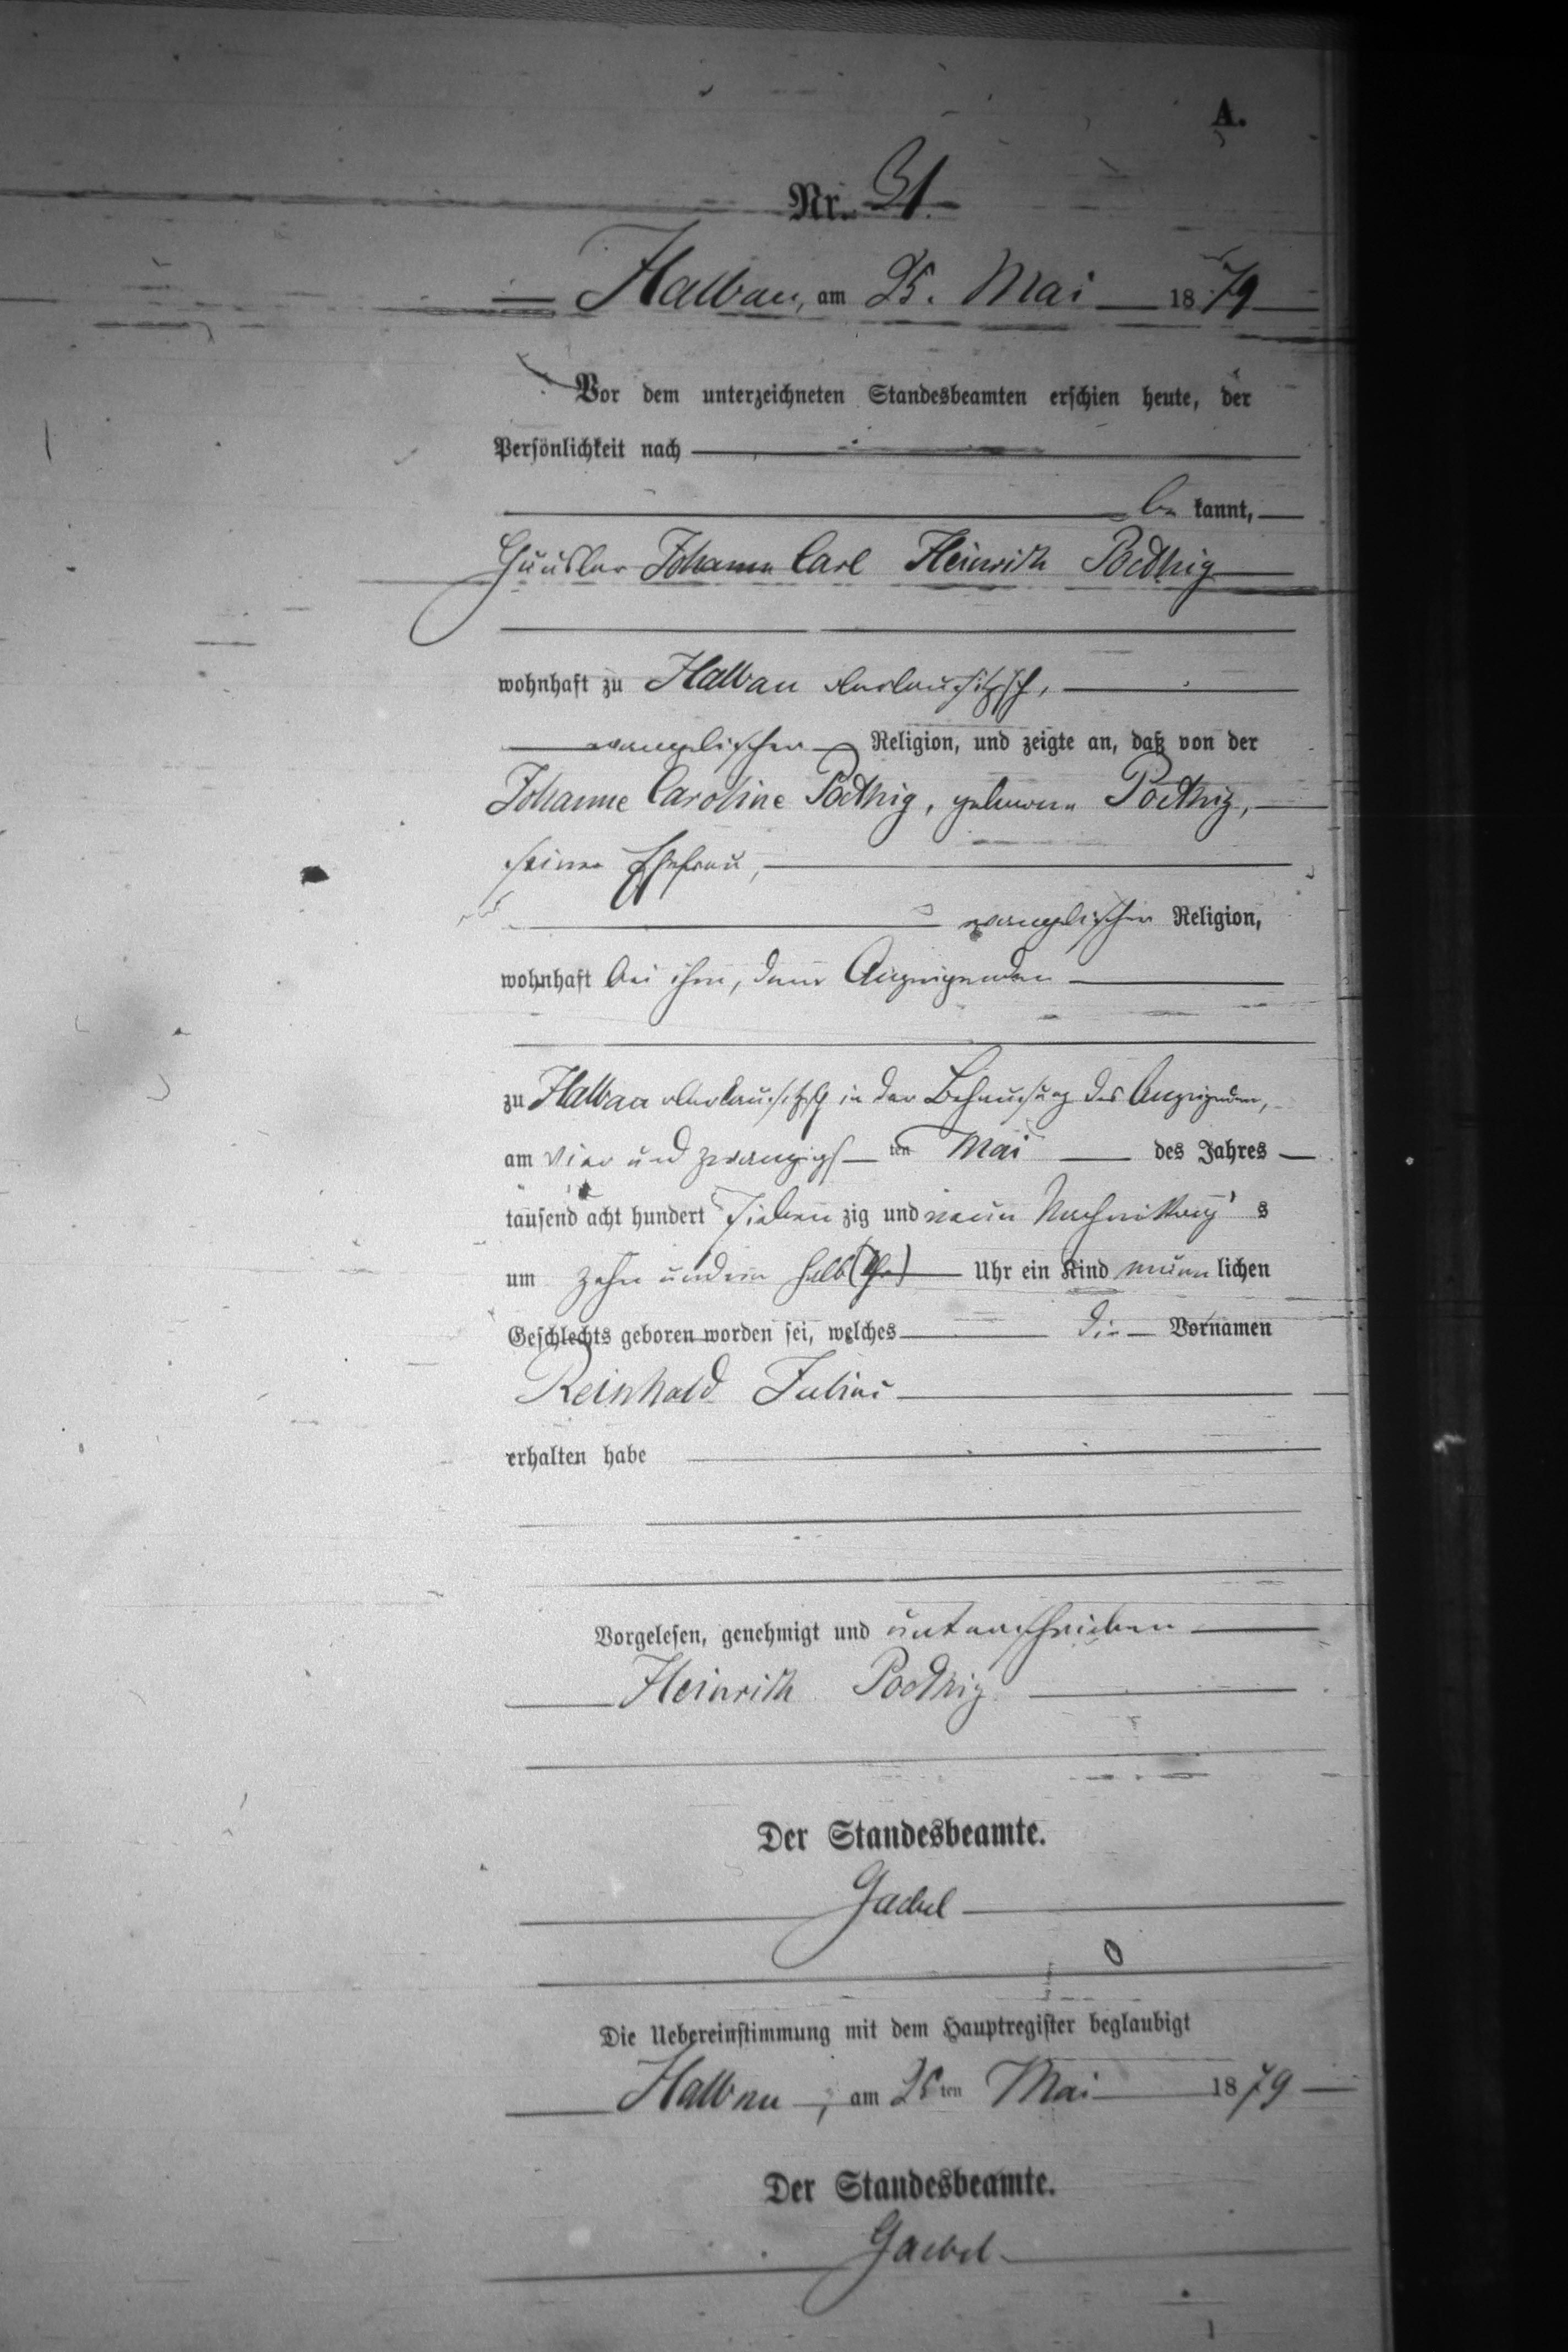 A.
Nr. 31.
Halbau, am 25. Mai 1879
Vor dem unterzeichneten Standesbeamten erschien heute, der
Persönlichkeit nach
be kannt,
Häusler Johann Carl Heinrich Poethig
wohnhaft zu Halbau oberlausitzsch,
evangelischer Religion, und zeigte an, daß von der
Johanne Caroline Poethig, geborene Poethig,
seiner Ehefrau,
evangelischer Religion,
wohnhaft bei ihm, dem Anzeigenden
zu Halbau oberlausitzsch in der Behausung des Anzeigenden,
am vier und zwanzigsten Mai des Jahres
tausend acht hundert siebenzig und neun Nachmittags
um zehn undein halb Uhr ein Kind männlichen
Geschlechts geboren worden sei, welches die Vornamen
Reinhold Julius
erhalten habe
Vorgelesen, genehmigt und unterschrieben
Heinrich Poethig
Der Standesbeamte.
Gaebel
Die Uebereinstimmung mit dem Hauptregister beglaubigt
Halbau, am 25ten Mai 1879
Der Standesbeamte.
Gaebel